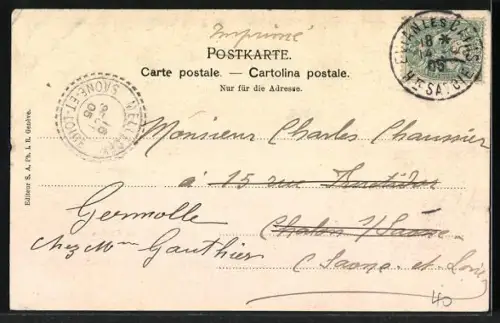 Imprimé
POSTKARTE.
Carte postale. — Cartolina postale.
Nur für die Adresse.
EVIAN LES BAINS
18
05
Hte SAVOIE
SAONE-ET-LOIRE
05
Monsieur Charles Chaussier
à 15 rue
Chalon s/Saône
Germolle
chez Mme Gauthier
(Saône et Loire
40
Editeur S. A. Ph. I. R. Genève.